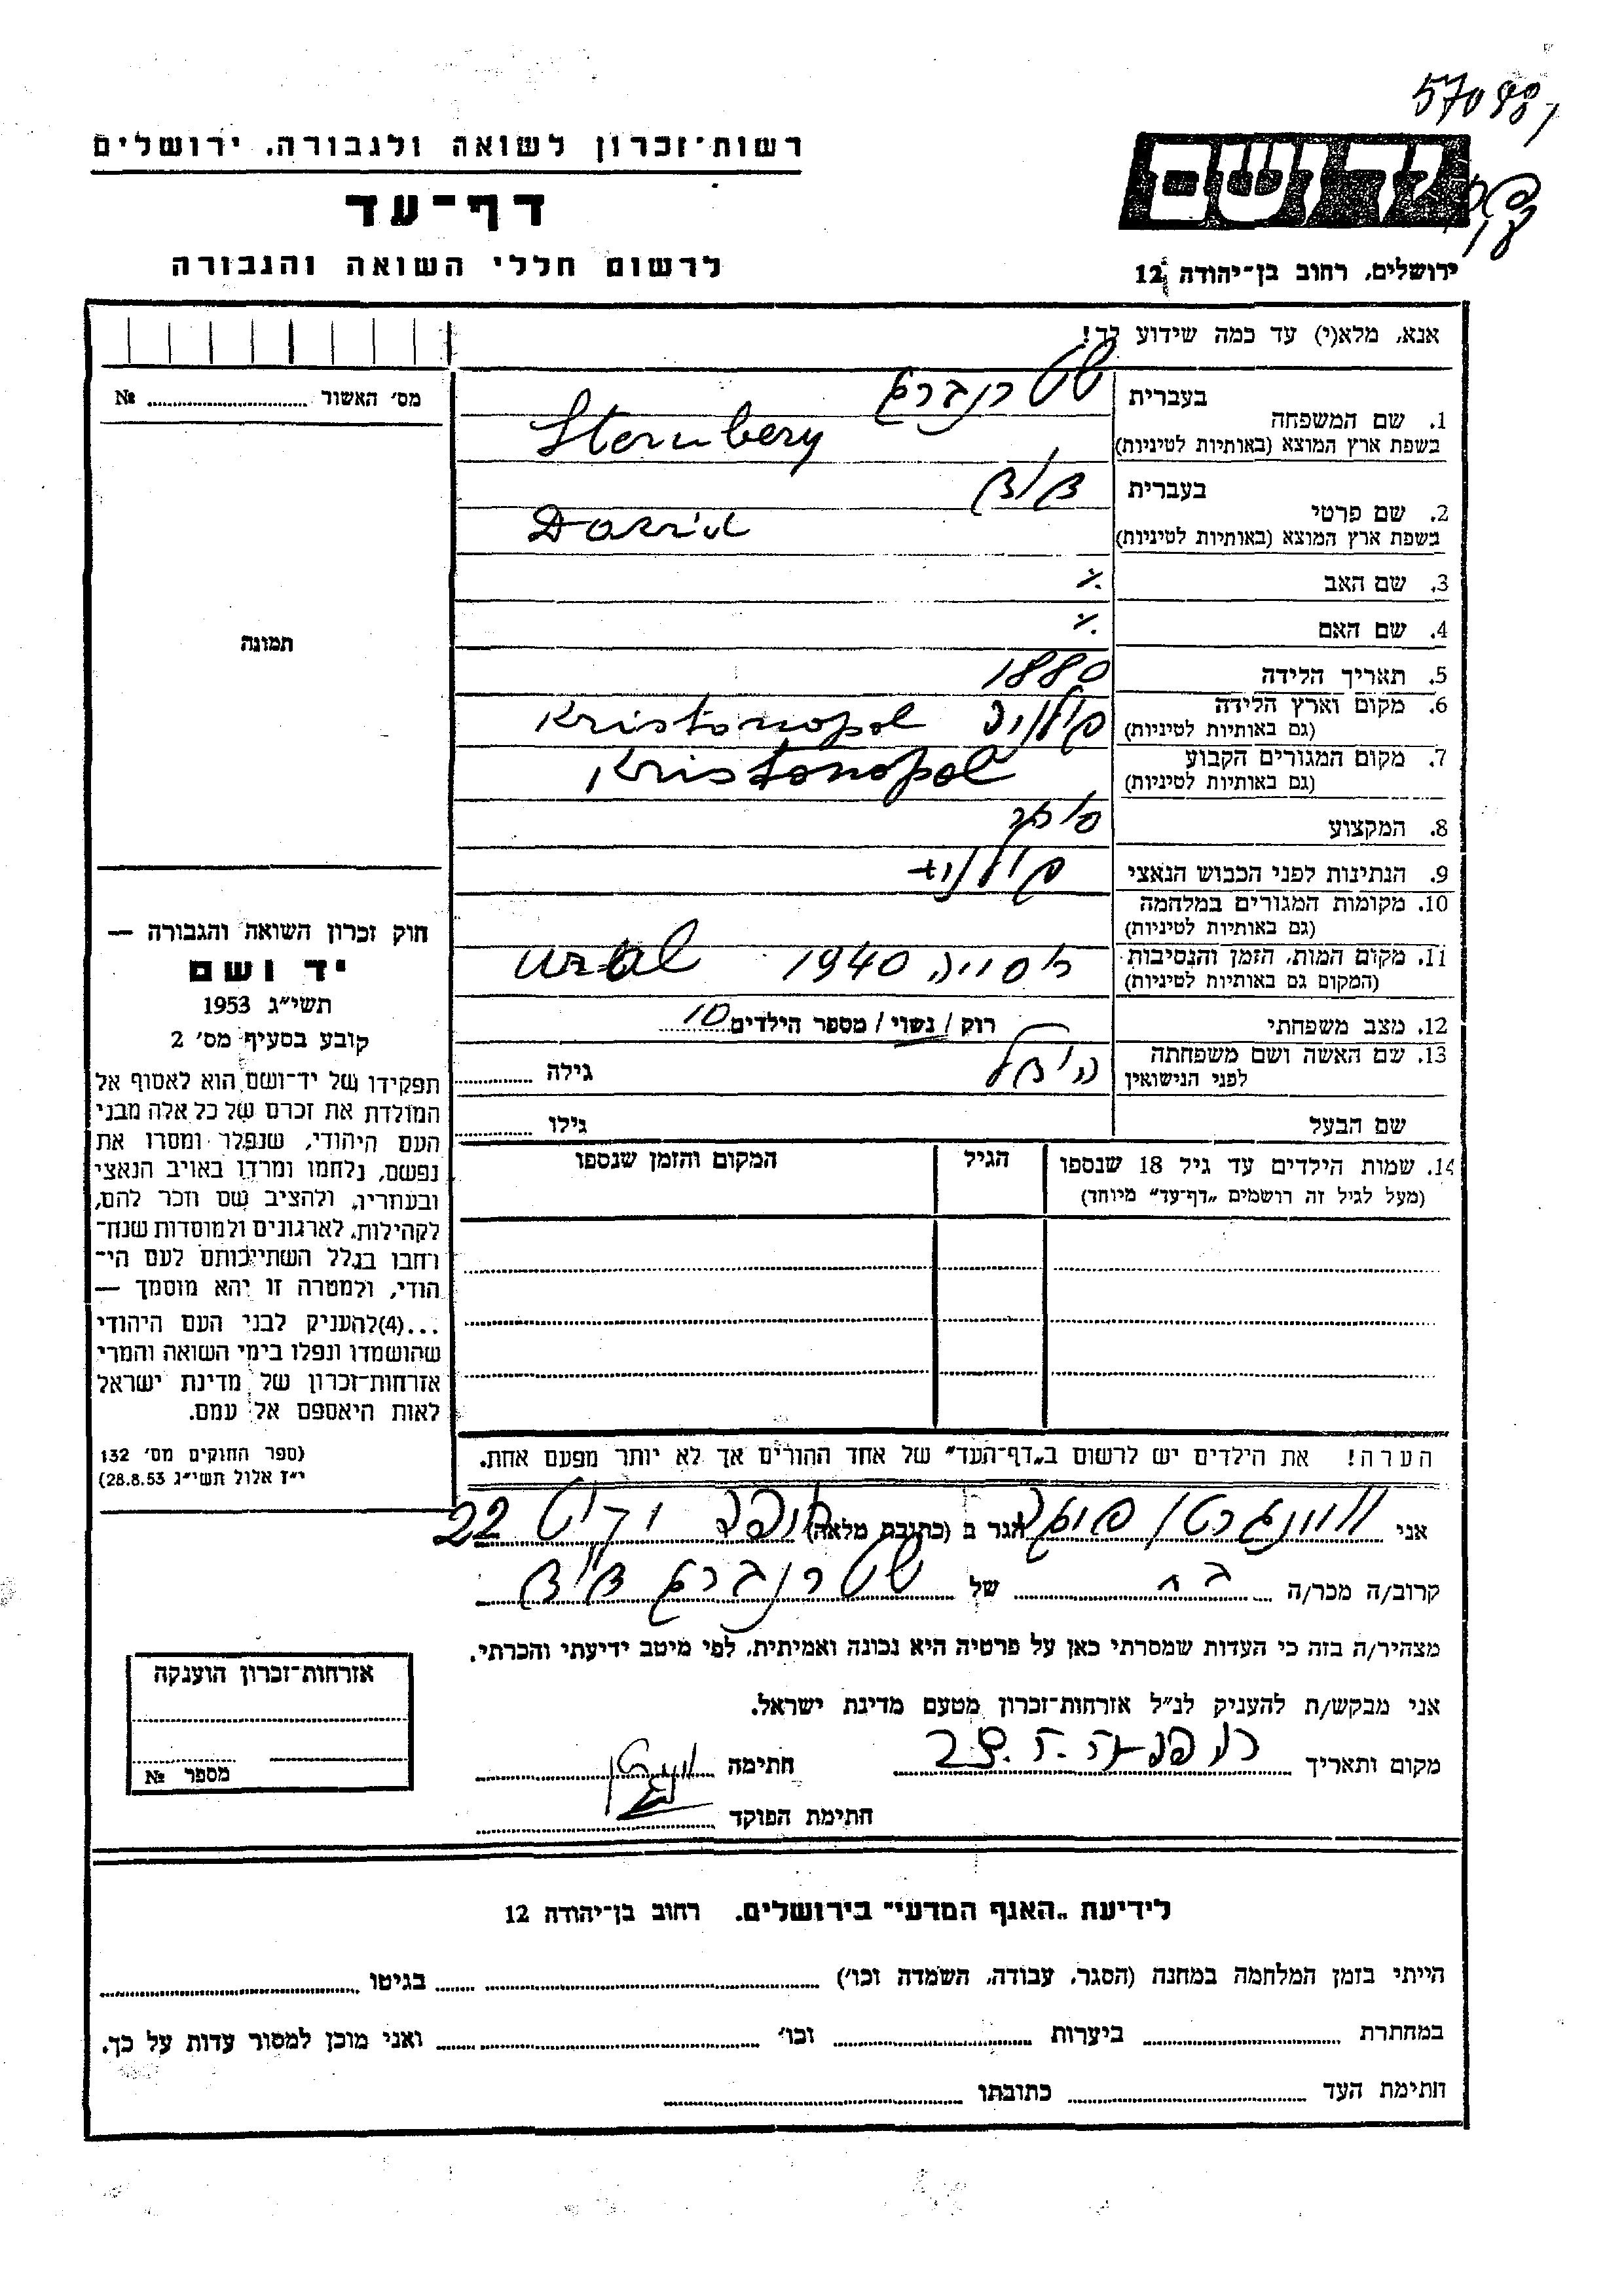 570881
רשות־זכרון לשואה ולגבורה, ירושלים
יד ושם
דף־עד
לרשום חללי השואה והגבורה
ירושלים, רחוב בן־יהודה 12
אנא, מלא(י) עד כמה שידוע לך!
מס׳ האשור № 
1. שם המשפחה בעברית שטרנברג
בשפת ארץ המוצא (באותיות לטיניות) Sternberg
2. שם פרטי בעברית דוד
בשפת ארץ המוצא (באותיות לטיניות) David
3. שם האב ٪
4. שם האם ٪
5. תאריך הלידה 1880
6. מקום וארץ הלידה (גם באותיות לטיניות) פולניה Kristonopol
7. מקום המגורים הקבוע (גם באותיות לטיניות) Kristonopol
8. המקצוע סוחר
9. הנתינות לפני הכבוש הנאצי פולנית
10. מקומות המגורים במלחמה (גם באותיות לטיניות)
11. מקום המות, הזמן והנסיבות (המקום גם באותיות לטיניות) 1940 ural
12. מצב משפחתי רוק / נשוי / מספר הילדים 10
13. שם האשה ושם משפחתה לפני הנישואין גילה
שם הבעל גילו
14. שמות הילדים עד גיל 18 שנספו הגיל המקום והזמן שנספו
(מעל לגיל זה רושמים „דף־עד״ מיוחד)
תמונה
חוק זכרון השואה והגבורה —
יד ושם
תשי״ג 1953
קובע בסעיף מס׳ 2
תפקידו של יד־ושם הוא לאסוף אל
המולדת את זכרם של כל אלה מבני
העם היהודי, שנפלו ומסרו את
נפשם, נלחמו ומרדו באויב הנאצי
ובעוזריו, ולהציב שם וזכר להם,
לקהילות, לארגונים ולמוסדות שנח־
רחבו בגלל השתייכותם לעם הי־
הודי, ולמטרה זו יהא מוסמך —
...(4)להעניק לבני העם היהודי
שהושמדו ונפלו בימי השואה והמרי
אזרחות־זכרון של מדינת ישראל
לאות היאספם אל עמם.
(ספר החוקים מס׳ 132
י״ז אלול תשי״ג 28.8.53)
הערה! את הילדים יש לרשום ב„דף־העד״ של אחד ההורים אך לא יותר מפעם אחת.
אני הגר ב (כתובת מלאה) 22
קרוב/ה מכר/ה בת של שטרנברג דוד
מצהיר/ה בזה כי העדות שמסרתי כאן על פרטיה היא נכונה ואמיתית, לפי מיטב ידיעתי והכרתי.
אני מבקש/ת להעניק לנ״ל אזרחות־זכרון מטעם מדינת ישראל.
מקום ותאריך חתימה
חתימת הפוקד
אזרחות־זכרון הוענקה
מספר №
לידיעת „האגף המדעי״ בירושלים. רחוב בן־יהודה 12
הייתי בזמן המלחמה במחנה (הסגר, עבודה, השמדה וכו׳) בגיטו
במחתרת ביערות וכו׳ ואני מוכן למסור עדות על כך.
חתימת העד כתובתו